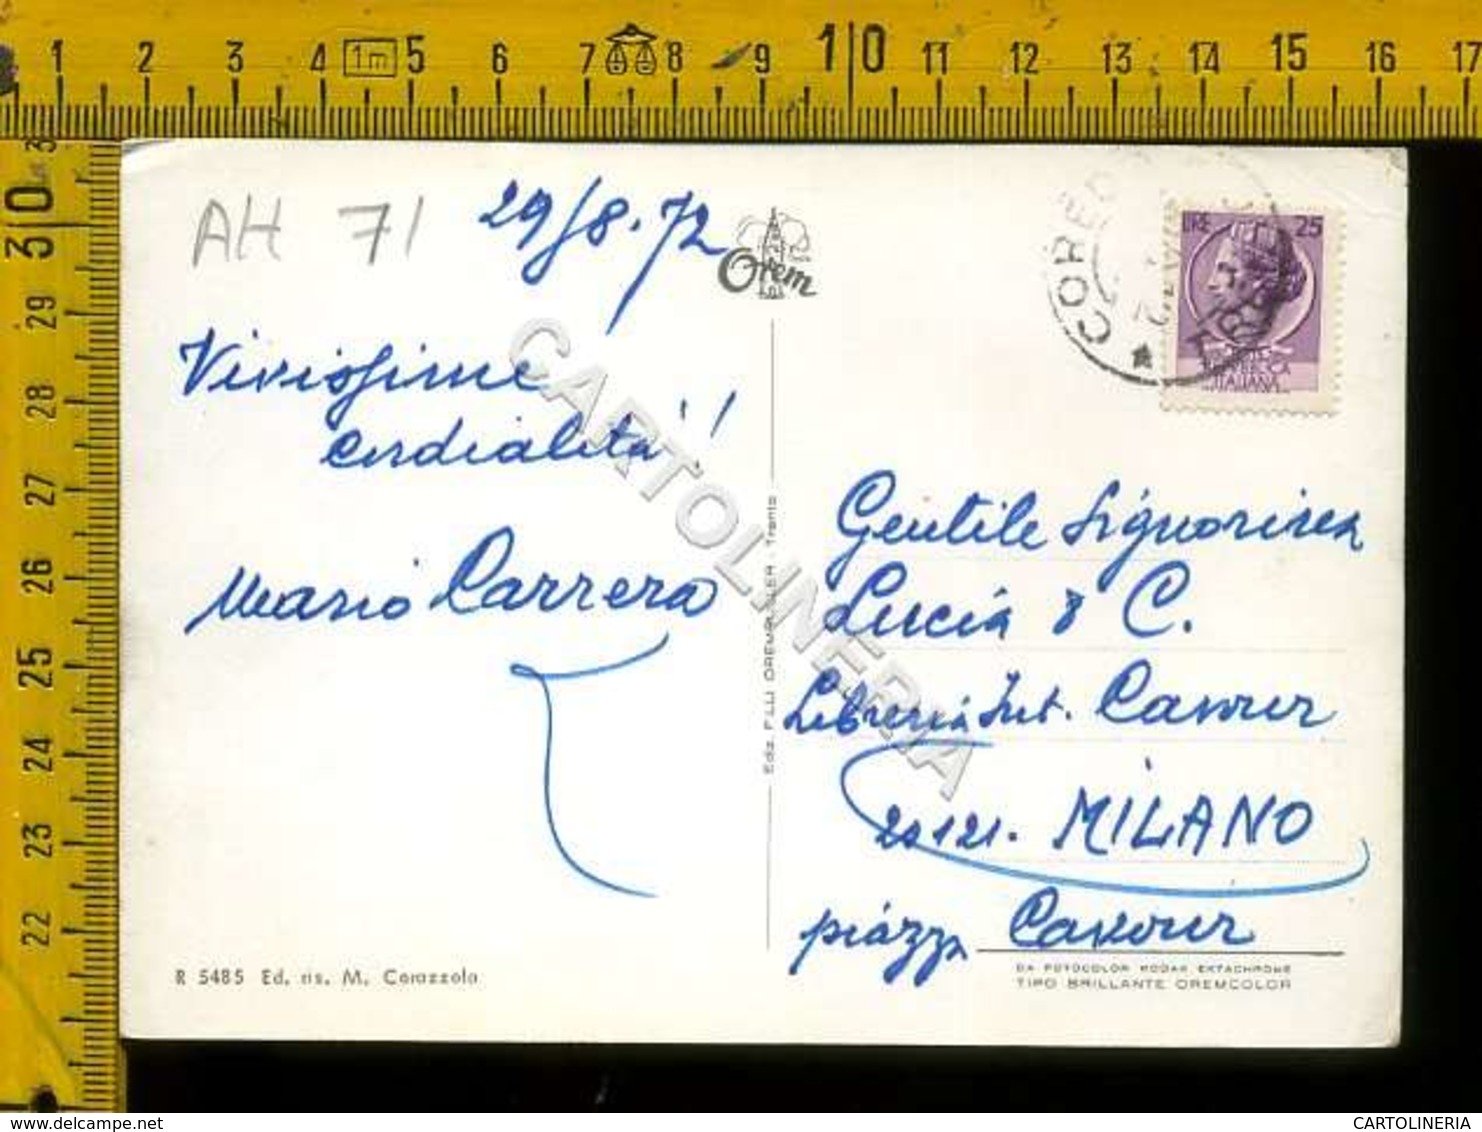 1 2 3 4 1m 5 6 7 8 9 10 11 12 13 14 15 16 17
30
29
28
27
26
25
24
23
22
AH 71
29/8.72
Orem
CORED
LIRE 25
ITALIANA
Vivissime
cordialità!!
Mario Carrera
Gentile Signorina
Lucia & C.
Libreria Int. Cavour
20121. MILANO
piazza Cavour
Ediz. F.LLI Trento
R 5485 Ed. ris. M. Corazzola
DA FOTOCOLOR KODAK EKTACHROME
TIPO BRILLANTE OREMCOLOR
CARTOLINERIA
CARTOLINERIA